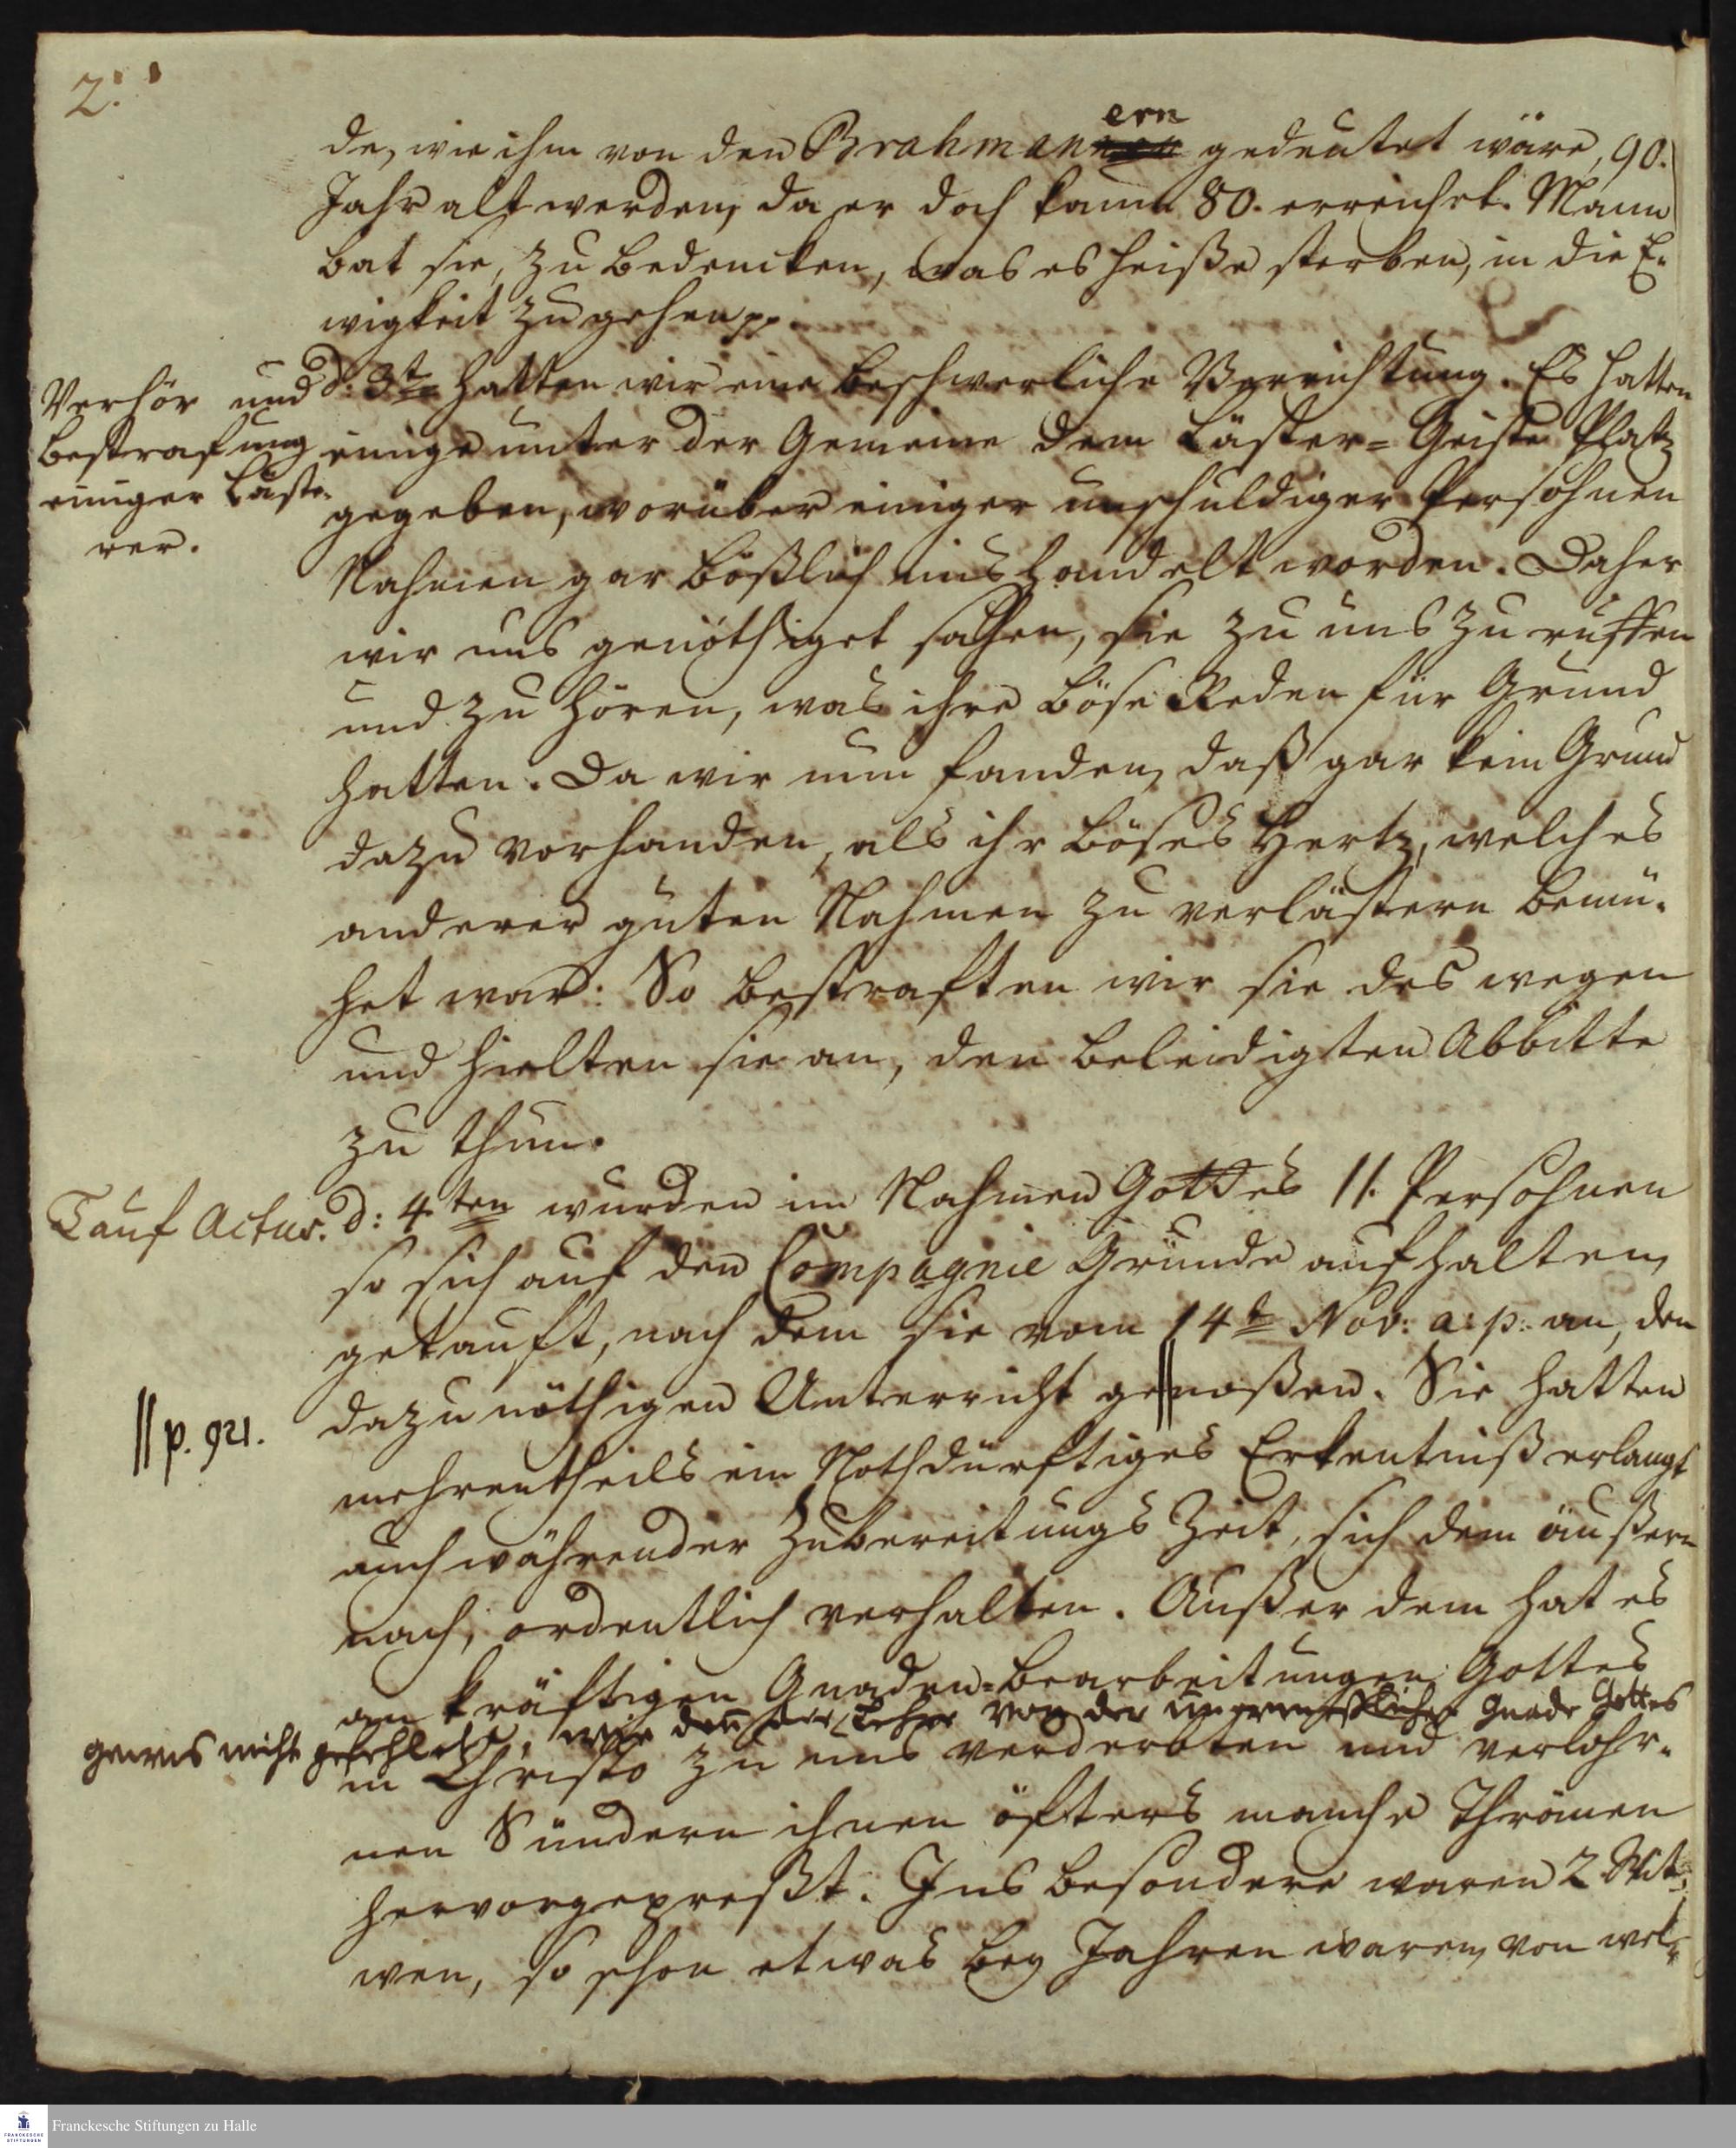 2.
de, wie ihm von den Brahmanern gedeutet wäre, 90.
Jahr alt werden, da er doch kaum 80. erreichet. Mann
bat sie, zu bedencken, was es heiße sterben, in die E-
wigkeit zu gehen pp.
Verhör und
bestrafung
einiger Läste-
rer.
d: 3te hatten wir eine beschwerliche Verrichtung. Es hatten
einige unter der Gemeine dem Läster-Geiste Platz
gegeben, worüber einiger unschuldiger Persohnen
Nahmen gar bößlich mishandelt worden. Daher
wir uns genöthiget sahen, sie zu uns zu ruffen
und zu hören, was ihre böse Reden für Grund
hatten. Da wir nun fanden, daß gar kein Grund
dazu vorhanden, als ihr böses Hertz, welches
anderer guten Nahmen zu verlästern bemü-
het war: So bestraften wir sie deswegen
und hielten sie an, den beleidigten Abbitte
zu thun.
Tauf Actus.
d: 4ten wurden im Nahmen Gottes 11. Persohnen
so sich auf den Compagnie Grunde aufhalten,
getauft, nach dem sie vom 14t Nov: a: p: an, den
dazu nöthigen Unterricht genoßen. Sie hatten
|| p. 921.
mehrentheils ein Nothdürftiges Erkentniß erlangt
auch währender Zubereitungs Zeit, sich dem äußern
nach, ordentlich verhalten. Außer dem hat es
an kräftigen Gnaden-bearbeitungen Gottes
gewis nicht gefehlet, wie den die Lehre von der unermeßlichen Gnade Gottes
in Christo zu uns verderbten und verlohr-
nen Sündern ihnen öfters manche Thränen
hervorgepreßt. Ins besondere waren 2 Wit-
wen, so schon etwas bey Jahren waren, von wel-
Franckesche Stiftungen zu Halle